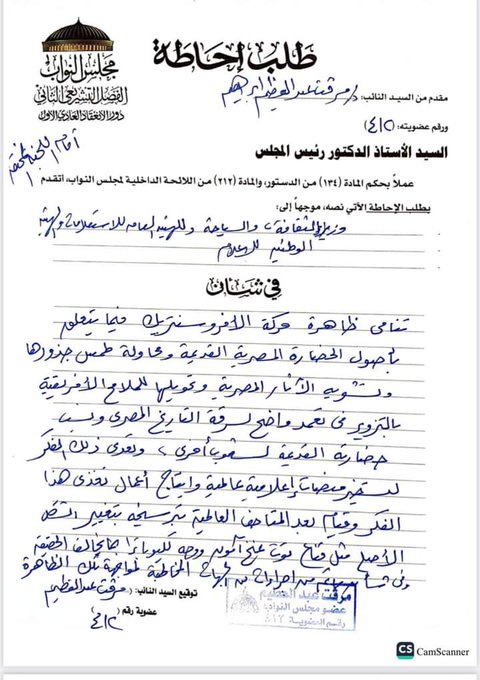 مجلس النواب
الفصل التشريعي الثاني
دور الانعقاد العادي الأول
طلب إحاطة
مقدم من السيد النائب: د/ مرفت عبد العظيم إبراهيم
ورقم عضويته: (٤١٢)
أمام اللجنة المختصة
السيد الأستاذ الدكتور رئيس المجلس
عملاً بحكم المادة (١٣٤) من الدستور، والمادة (٢١٢) من اللائحة الداخلية لمجلس النواب، أتقدم
بطلب الإحاطة الآتي نصه، موجهاً إلى:
وزير الثقافة، والسياحة وللهيئة العامة للاستعلامات والهيئة
الوطنية للإعلام
في شأن
تنامى ظاهرة حركة الأفروسنتريك فيما يتعلق
بأصول الحضارة المصرية القديمة ومحاولة طمس جذورها
وتشويه الآثار المصرية وتحويلها للملامح الأفريقية
بالتزوير فى تعمد واضح لسرقة التاريخ المصرى ونسب
حضارته القديمة لشعوب أخرى، وتعدى ذلك الفكر
لتسخير منصات إعلامية عالمية وإنتاج أعمال تغذى هذا
الفكر وقيام بعض المتاحف العالمية بترسيخه بتغيير الشكل
الأصلى مثل قناع توت عنخ آمون ووجه كليوباترا بما يخالف الحقيقة
من إجراءات من الجهات المخاطبة لمواجهة تلك الظاهرة
توقيع السيد النائب: د. مرفت عبد العظيم
عضوية رقم (
٤١٢
مرفت عبد العظيم
عضو مجلس النواب
رقم العضوية: ٤١٢
CS CamScanner